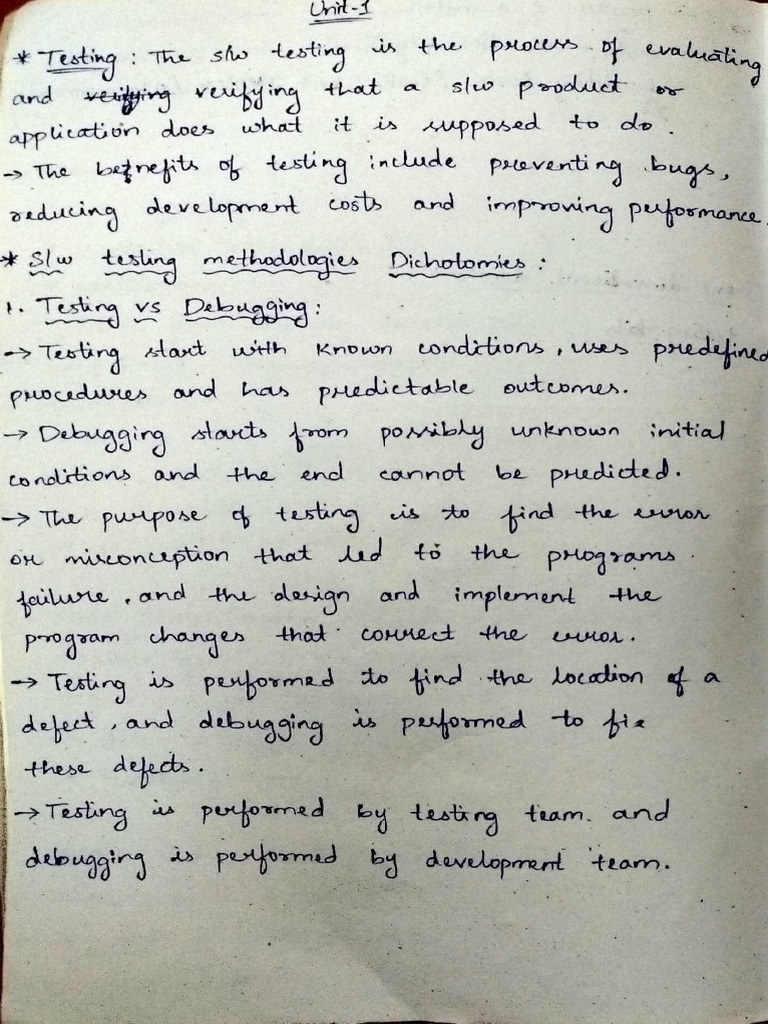 Unit-1
* Testing : The s/w testing is the process of evaluating
and verifying verifying that a s/w product or
application does what it is supposed to do.
→ The benefits of testing include preventing bugs,
reducing development costs and improving performance.
* S/w testing methodologies Dichotomies :
1. Testing vs Debugging :
→ Testing start with known conditions, uses predefined
procedures and has predictable outcomes.
→ Debugging starts from possibly unknown initial
conditions and the end cannot be predicted.
→ The purpose of testing is to find the error
or misconception that led to the programs
failure, and the design and implement the
program changes that correct the error.
→ Testing is performed to find the location of a
defect, and debugging is performed to fix
these defects.
→ Testing is performed by testing team. and
debugging is performed by development team.